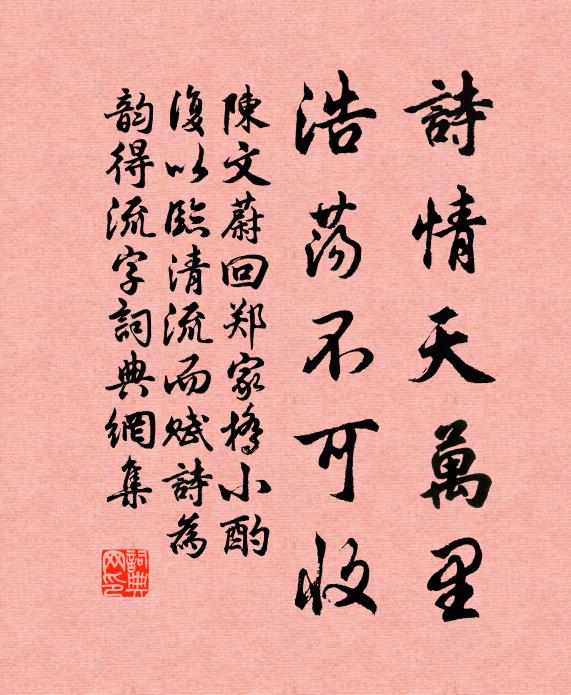 詩情天萬里
浩荡不可收
陳文蔚回郑家橋小酌
復以臨清流而赋詩為
韵得流字詞典網集
詞典网印